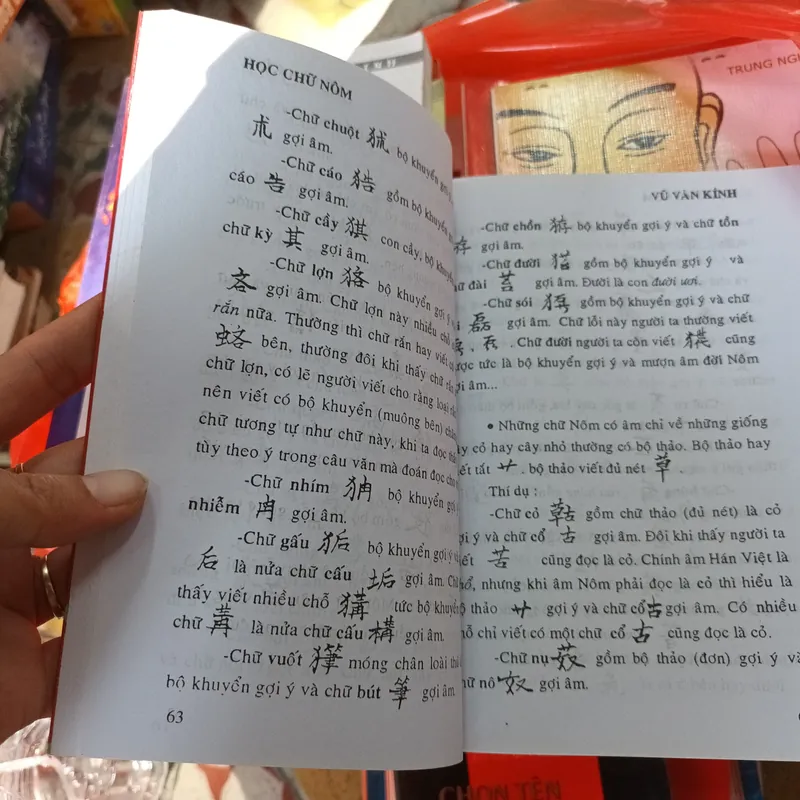 HỌC CHỮ NÔM
-Chữ chuột 㹥 bộ khuyển gợi
朮 gợi âm.
-Chữ cáo 𤞺 gồm bộ khuyển
cáo 告 gợi âm.
-Chữ cầy 猉 con cầy, bộ khuyển
chữ kỳ 其 gợi âm.
-Chữ lợn bộ khuyển gợi ý
吝 gợi âm. Chữ lợn này nhiều chỗ
rắn nữa. Thường thì chữ rắn hay viết
bên, thường đôi khi thấy chữ
chữ lợn, có lẽ người viết cho rằng loài
nên viết có bộ khuyển (muông bên)
chữ tương tự như chữ này, khi ta đọc
tùy theo ý trong câu văn mà đoán đọc cho
-Chữ nhím bộ khuyển gợi
nhiễm 冉 gợi âm.
-Chữ gấu bộ khuyển gợi ý
后 là nửa chữ cấu 垢 gợi âm.
thấy viết nhiều chỗ tức bộ khuyển
chữ 冓 là nửa chữ cấu 構 gợi âm.
-Chữ vuốt móng chân loài
bộ khuyển gợi ý và chữ bút 筆 gợi âm.
63
VŨ VĂN KÍNH
-Chữ chồn bộ khuyển gợi ý và chữ tồn
存 gợi âm.
-Chữ đười gồm bộ khuyển gợi ý và
đài 苔 gợi âm. Đười là con đười ươi.
-Chữ sói gồm bộ khuyển gợi ý và chữ
磊 gợi âm. Chữ lỗi này người ta thường viết
. Chữ đười người ta còn viết cũng
được tức là bộ khuyển gợi ý và mượn âm đời Nôm
gợi âm...
• Những chữ Nôm có âm chỉ về những giống
cây cỏ hay cây nhỏ thường có bộ thảo. Bộ thảo hay
viết tắt 艹. bộ thảo viết đủ nét 草.
Thí dụ :
-Chữ cỏ gồm chữ thảo (đủ nét) là cỏ
gợi ý và chữ cổ 古 gợi âm. Đôi khi thấy người ta
viết 苦 cũng đọc là cỏ. Chính âm Hán Việt là
khổ, nhưng khi âm Nôm phải đọc là cỏ thì hiểu là
bộ thảo 艹 gợi ý và chữ cổ 古 gợi âm. Có nhiều
chỗ chỉ viết có một chữ cổ 古 cũng đọc là cỏ.
-Chữ nụ gồm bộ thảo (đơn) gợi ý và
chữ nô 奴 gợi âm.
TRUNG
CHỌN TÊN